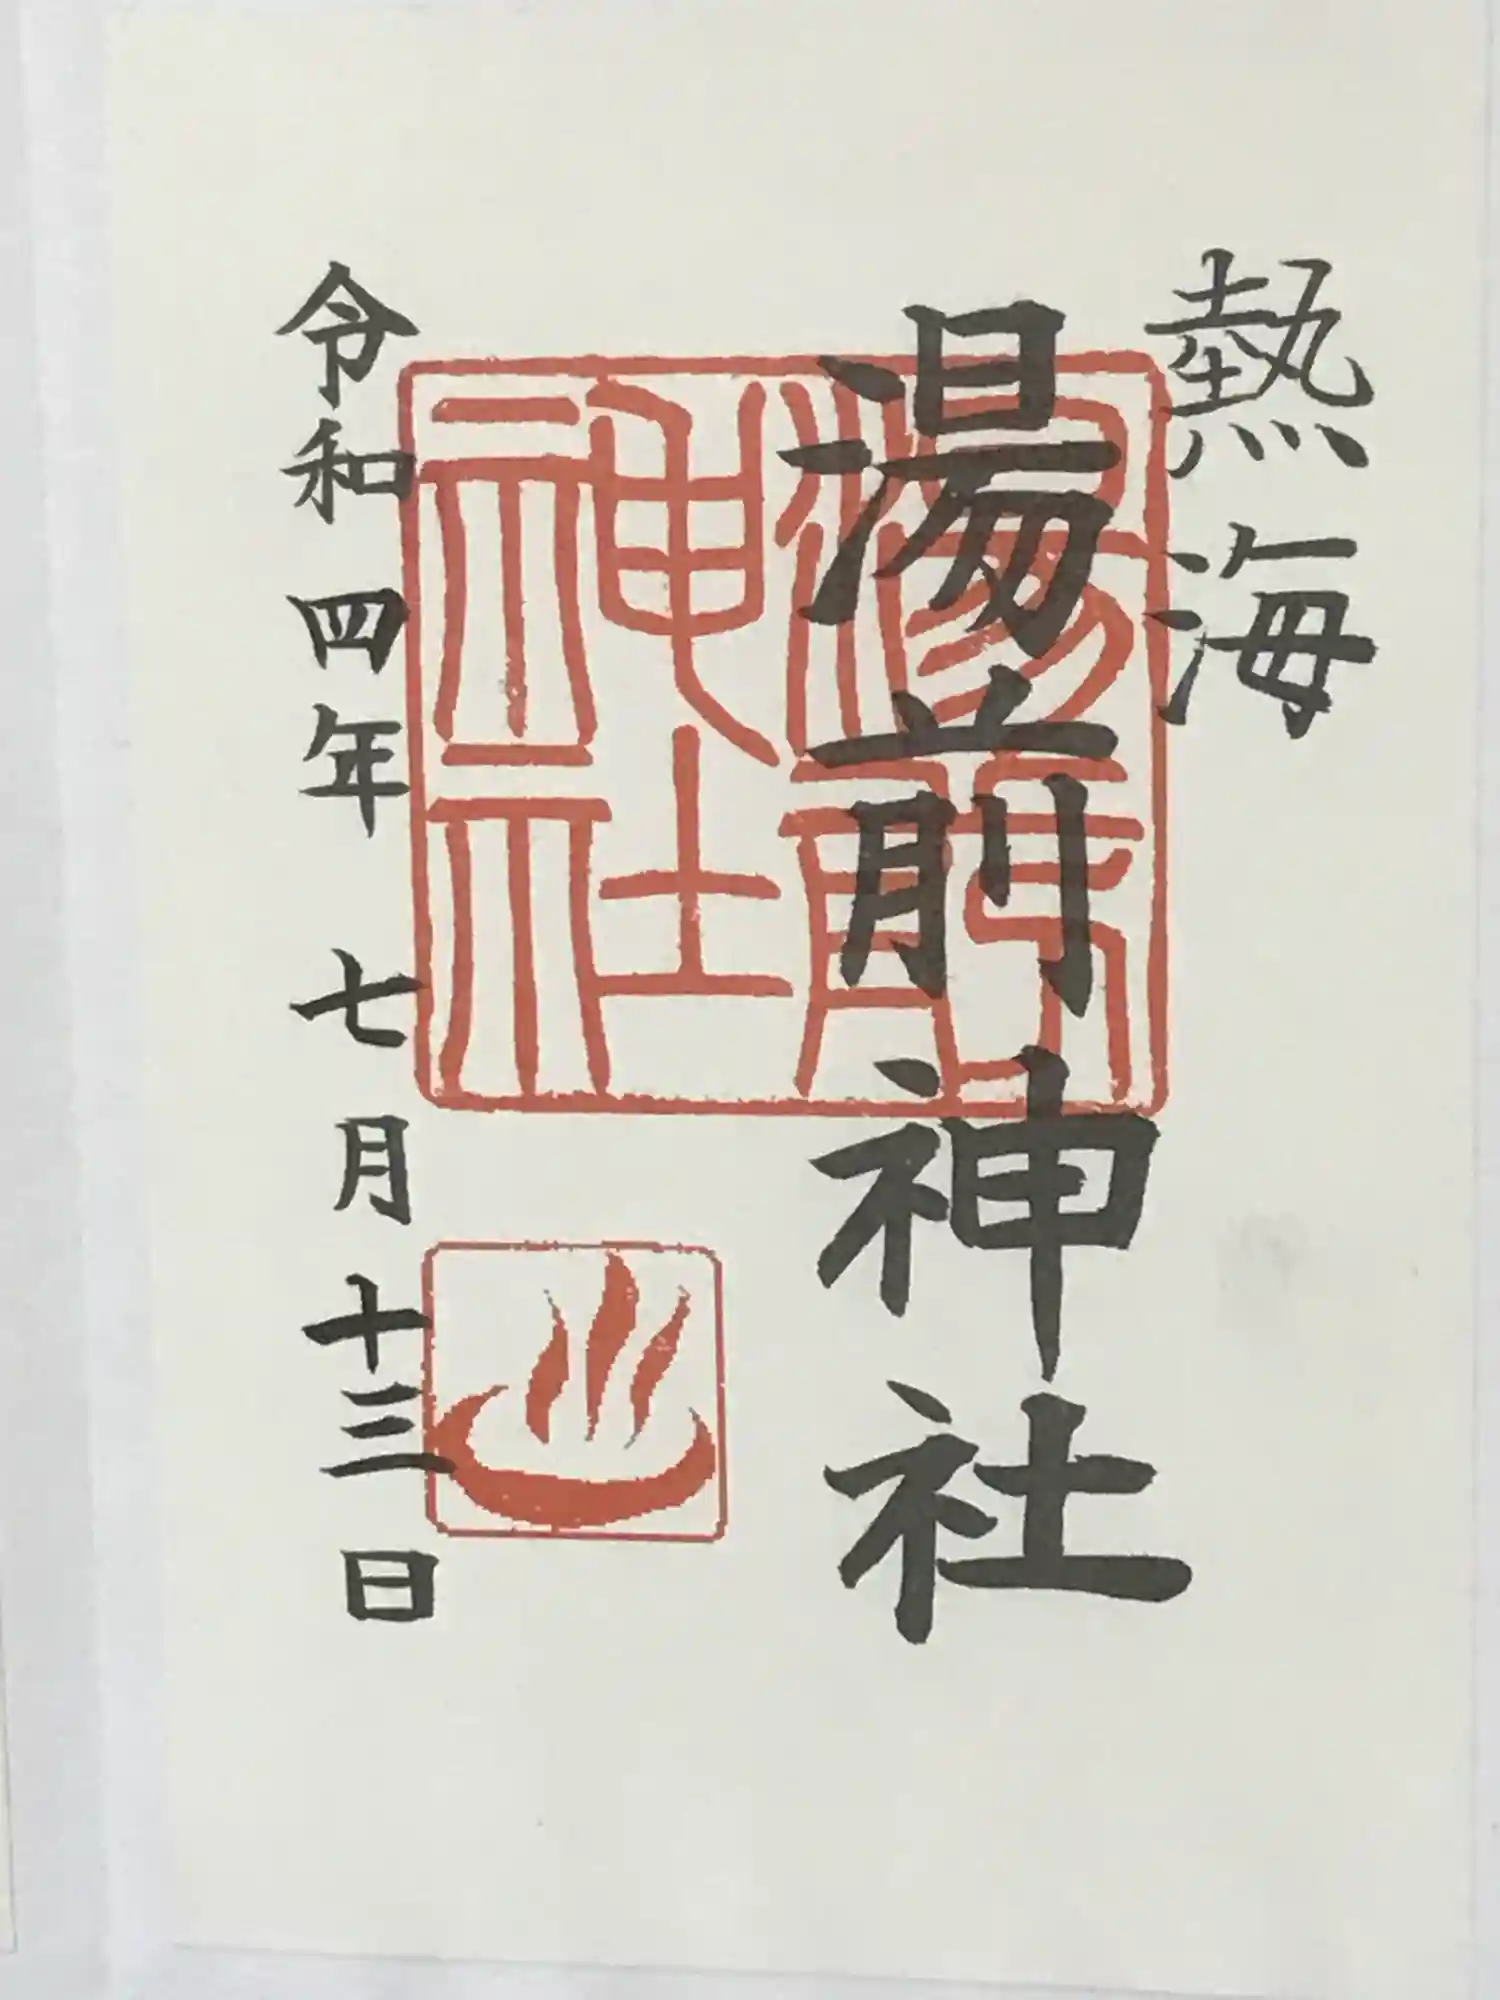 熱海
湯前神社
湯前神社
令和四年 七月十三日